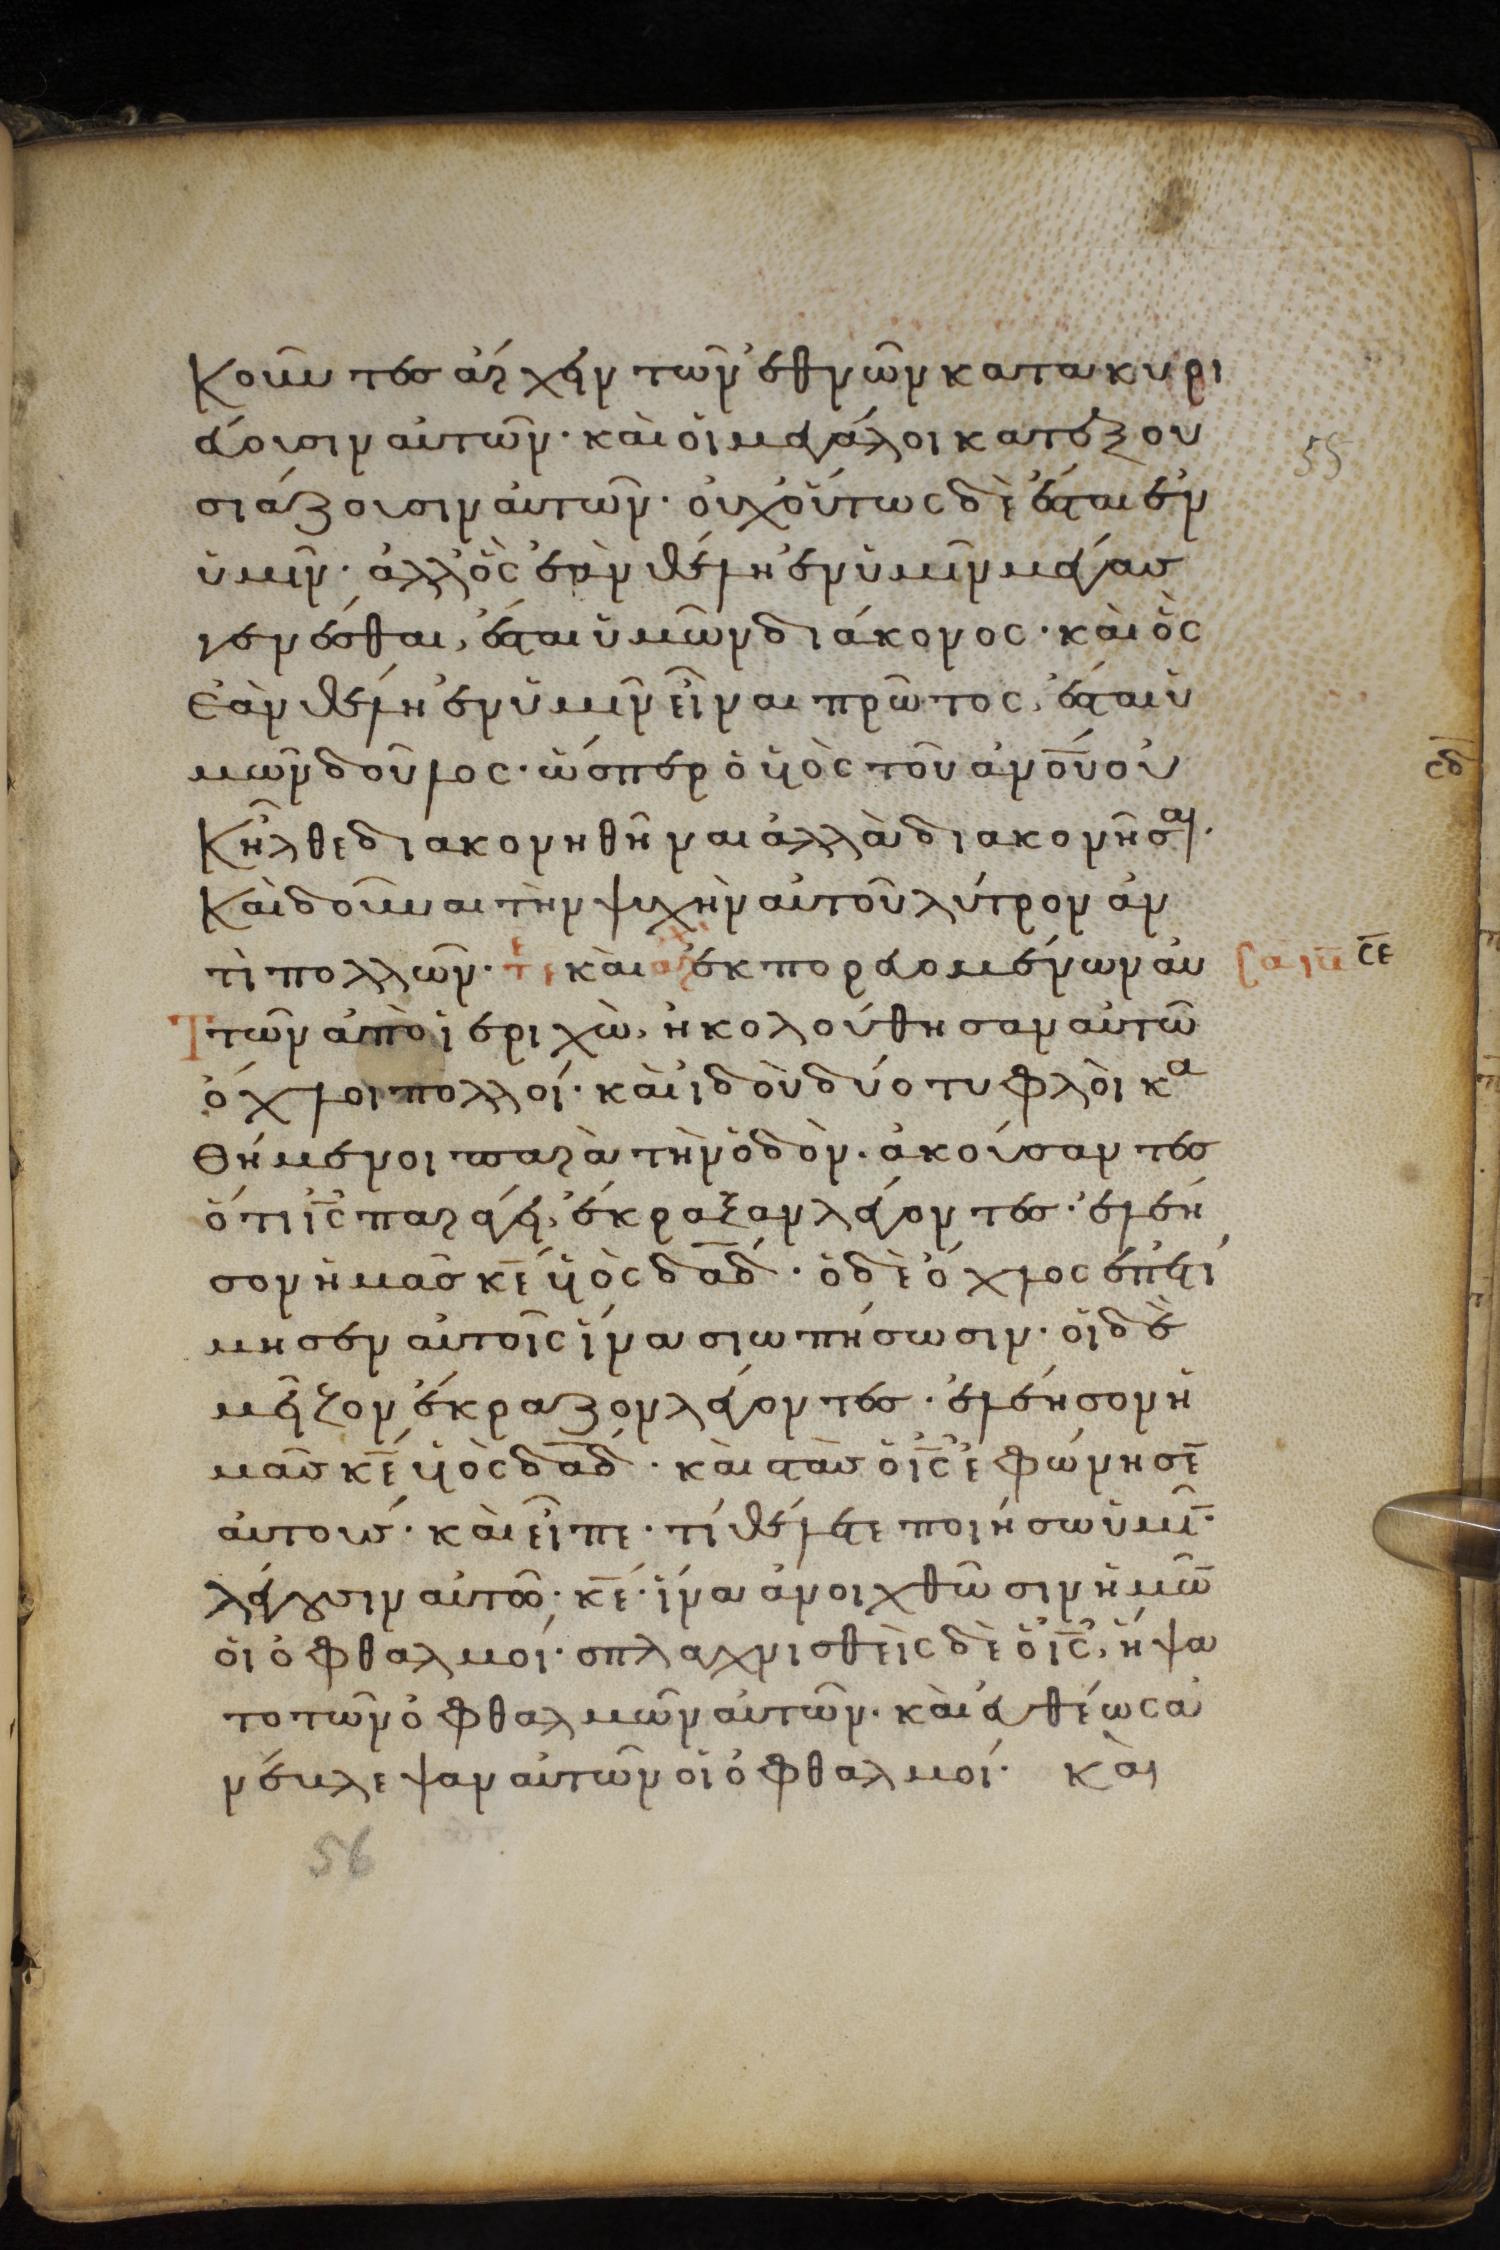 κοῦντες ἄρχειν τῶν ἐθνῶν κατακυρι
εύουσιν αὐτῶν· καὶ οἱ μεγάλοι κατεξου
σιάζουσιν αὐτῶν· οὐχ οὕτως δὲ ἔσται ἐν
ὑμῖν· ἀλλ' ὃς ἐὰν θέλη ἐν ὑμῖν μέγας
γενέσθαι, ἔσται ὑμῶν διάκονος· καὶ ὃς
ἐὰν θέλη ἐν ὑμῖν εἶναι πρῶτος, ἔσται ὑ
μῶν δοῦλος· ὥσπερ ὁ υἱὸς τοῦ ἀν̅ο̅υ̅ οὐ
κ ἦλθε διακονηθῆναι ἀλλὰ διακονῆσαι·
καὶ δοῦναι τὴν ψυχὴν αὐτοῦ λύτρον ἀν
τὶ πολλῶν· τε καὶ ἐκπορευομένων αὐ
τῶν ἀπὸ ἱεριχὼ, ἠκολούθησαν αὐτῶ
ὄχλοι πολλοί· καὶ ἰδοὺ δύο τυφλοὶ κα
θήμενοι παρὰ τὴν ὁδὸν· ἀκούσαντες
ὅτι ι̅ς̅ παράγει, ἔκραξαν λέγοντες· ἐλέη
σον ἡμᾶς κ̅ε̅ υἱὸς δ̅α̅δ̅· ὁ δὲ ὄχλος ἐπετί
μησεν αὐτοῖς ἵνα σιωπήσωσιν· οἱ δὲ
μεῖζον ἔκραζον λέγοντες· ἐλέησον ἡ
μᾶς κ̅ε̅ υἱὸς δ̅α̅δ̅· καὶ στὰς ὁ ι̅ς̅ ἐφώνησε̅
αὐτούς· καὶ εἶπε· τί θέλετε ποιήσω ὑμῖ̅·
λέγουσιν αὐτῶ· κ̅ε̅· ἵνα ἀνοιχθῶσιν ἡμῶ̅
οἱ ὀφθαλμοί· σπλαχνισθεὶς δὲ ὁ ι̅ς̅, ἥψα
το τῶν ὀφθαλμῶν αὐτῶν· καὶ εὐθέως ἀ
νέβλεψαν αὐτῶν οἱ ὀφθαλμοί· καὶ
55
σδ
σε
56